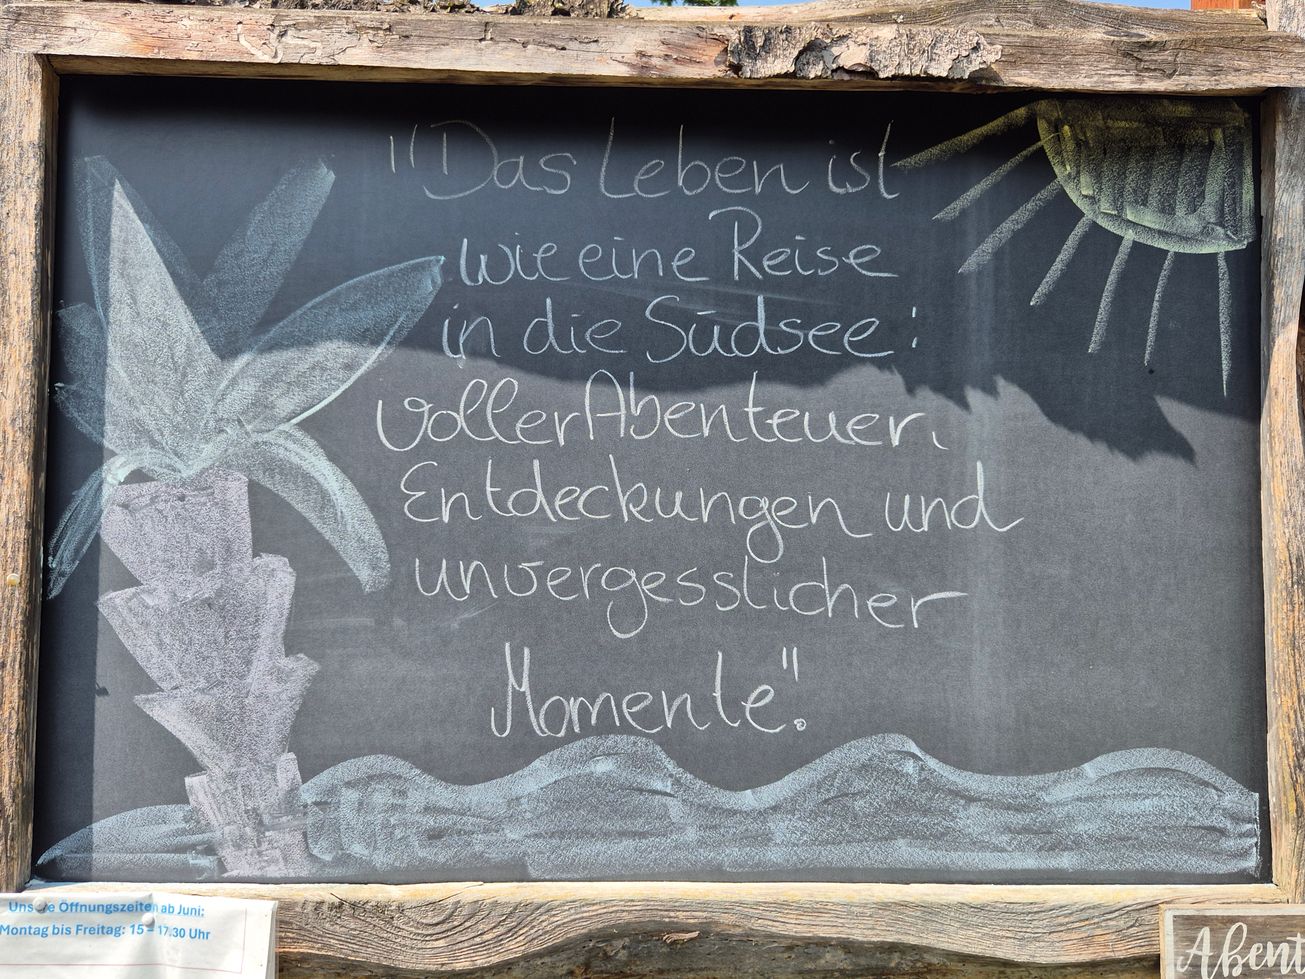 "Das Leben ist
wie eine Reise
in die Südsee:
voller Abenteuer,
Entdeckungen und
unvergesslicher
Momente".
Unsere Öffnungszeiten ab Juni:
Montag bis Freitag: 15 – 17.30 Uhr
Abent